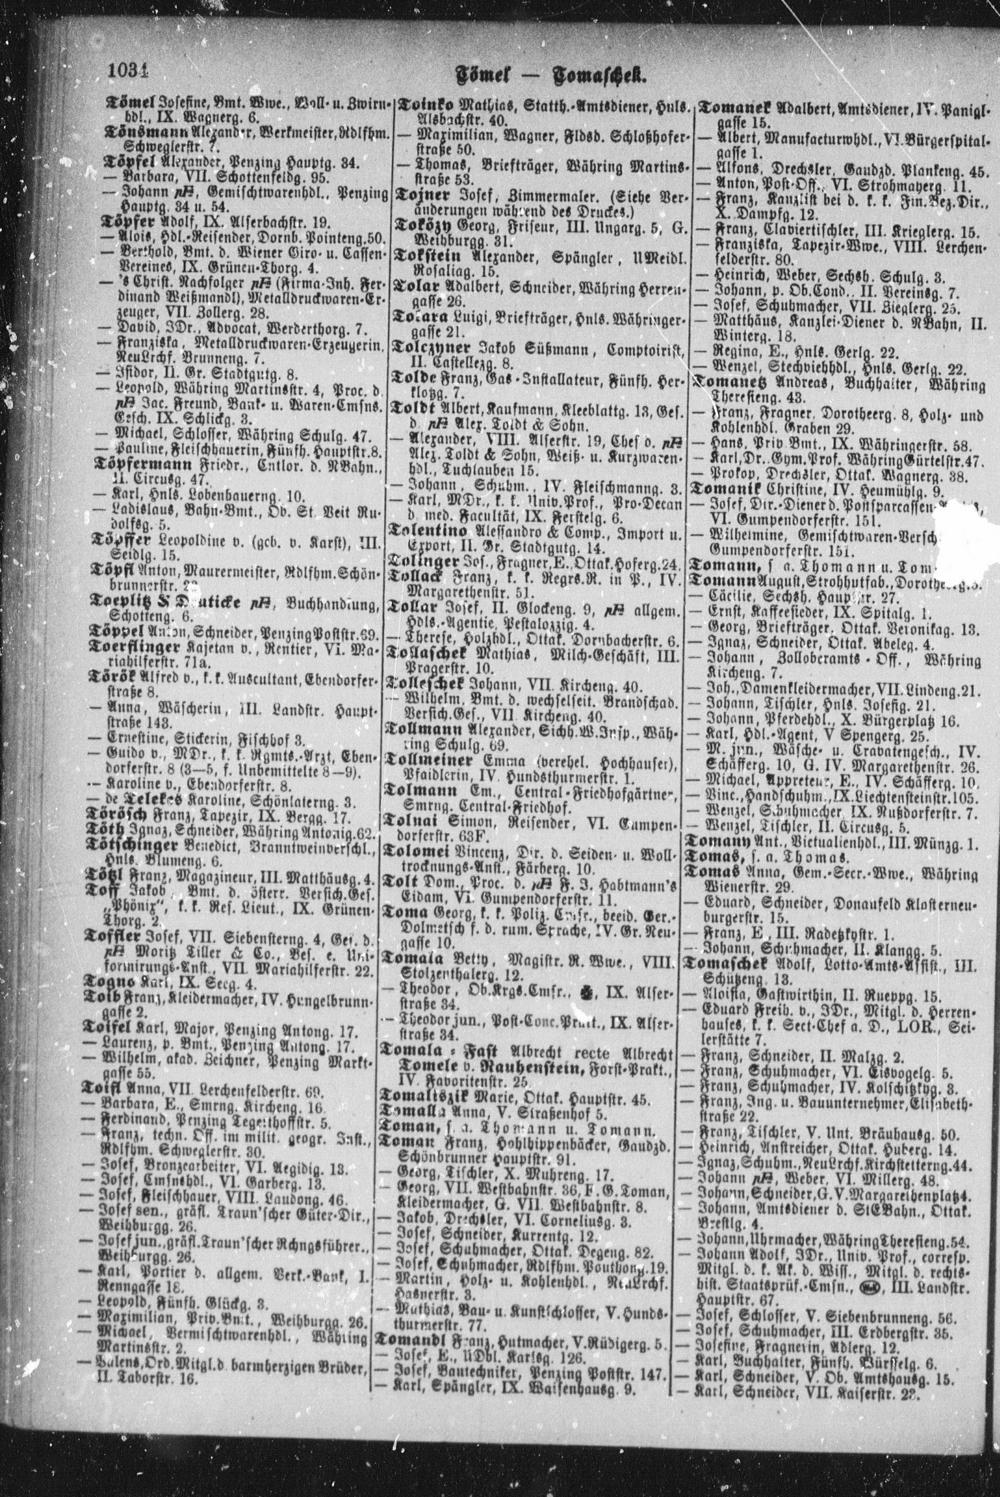 1034
Tömel — Tomaschek.
Tömel Josefine, Bmt. Wwe., Woll- u. Zwirn-
hdl., IX. Wagnerg. 6.
Tönsmann Alexander, Werkmeister, Rdlfhm.
Schweglerstr. 7.
Töpfel Alexander, Penzing Hauptg. 34.
— Barbara, VII. Schottenfeldg. 95.
— Johann, Gemischtwarenhdl., Penzing
Hauptg. 34 u. 54.
Töpfer Adolf, IX. Alserbachstr. 19.
— Alois, Hdl.-Reisender, Dornb. Pointeng. 50.
— Berthold, Bmt. d. Wiener Giro- u. Cassen-
Vereines, IX. Grünen-Thorg. 4.
— 's Christ. Nachfolger (Firma-Inh. Fer-
dinand Weißmandl), Metalldruckwaren-Er-
zeuger, VII. Zollerg. 28.
— David, JDr., Advocat, Werderthorg. 7.
— Franziska, Metalldruckwaren-Erzeugerin,
NeuLrchf. Brunneng. 7.
— Isidor, II. Gr. Stadtgutg. 8.
— Leopold, Währing Martinsstr. 4, Proc. d.
Jac. Freund, Bank- u. Waren-Cmsns.
Gesch. IX. Schlickg. 3.
— Michael, Schlosser, Währing Schulg. 47.
— Pauline, Fleischhauerin, Fünfh. Hauptstr. 8.
Töpfermann Friedr., Cntlor. d. NBahn.,
II. Circusg. 47.
— Karl, Hnls. Lobenhauerng. 10.
— Ladislaus, Bahn-Bmt., Ob. St. Veit Ru-
dolfsg. 5.
Töpffer Leopoldine v. (geb. v. Karst), III.
Seidlg. 15.
Töpfl Anton, Maurermeister, Rdlfhm. Schön-
brunnerstr.
Toeplitz & Deuticke, Buchhandlung,
Schotteng. 6.
Töppel Anton, Schneider, Penzing Poststr. 69.
Toerflinger Kajetan v., Rentier, VI. Ma-
riahilferstr. 71a.
Török Alfred v., k. k. Auscultant, Ebendorfer-
straße 8.
— Anna, Wäscherin, III. Landstr. Haupt-
straße 143.
— Ernestine, Stickerin, Fischhof 3.
— Guido v., MDr., k. k. Rgmts.-Arzt, Eben-
dorferstr. 8 (3—5, f. Unbemittelte 8—9).
— Karoline v., Ebendorferstr. 8.
— de Telekes Karoline, Schönlaterng. 3.
Törösch Franz, Tapezir, IX. Bergg. 17.
Töth Ignaz, Schneider, Währing Antonig. 62.
Tötschinger Benedict, Branntweinverschl.,
Hnls. Blumeng. 6.
Tötzl Franz, Magazineur, III. Matthäusg. 4.
Toff Jakob, Bmt. d. österr. Versich.Ges.
„Phönix“, k. k. Res. Lieut., IX. Grünen-
Thorg. 2.
Toffler Josef, VII. Siebensterng. 4, Ges. d.
Moritz Tiller & Co., Bes. e. Uni-
formirungs-Anst., VII. Mariahilferstr. 22.
Togno Karl, IX. Seeg. 4.
Tolb Franz, Kleidermacher, IV. Hungelbrunn-
gasse 2.
Toifel Karl, Major, Penzing Antong. 17.
— Laurenz, p. Bmt., Penzing Antong. 17.
— Wilhelm, akad. Zeichner, Penzing Markt-
gasse 55.
Toifl Anna, VII. Lerchenfelderstr. 69.
— Barbara, E., Smrng. Kircheng. 16.
— Ferdinand, Penzing Tegetthoffstr. 5.
— Franz, techn. Off. im milit. geogr. Inst.,
Rdlfhm. Schweglerstr. 30.
— Josef, Bronzearbeiter, VI. Aegidig. 13.
— Josef, Cmsnshdl., VI. Garberg. 13.
— Josef, Fleischhauer, VIII. Laudong. 46.
— Josef sen., gräfl. Traun'scher Güter-Dir.,
Weihburgg. 26.
— Josef jun., gräfl. Traun'scher Rchngsführer.,
Weihburgg. 26.
— Karl, Portier d. allgem. Verk.-Bank, I.
Renngasse 18.
— Leopold, Fünfh. Glückg. 3.
— Maximilian, Priv.Bmt., Weihburgg. 26.
— Michael, Vermischtwarenhdl., Währing
Martinsstr. 2.
— Valens, Ord. Mitgl. d. barmherzigen Brüder,
II. Taborstr. 16.
Toinko Mathias, Statth.-Amtsdiener, Hnls.
Alsbachstr. 40.
— Maximilian, Wagner, Fldsd. Schloßhofer-
straße 50.
— Thomas, Briefträger, Währing Martins-
straße 53.
Tojner Josef, Zimmermaler. (Siehe Ver-
änderungen während des Druckes.)
Toközy Georg, Friseur, III. Ungarg. 5, G.
Weihburgg. 31.
Tokstein Alexander, Spängler, UMeidl.
Rosaliag. 15.
Tolar Adalbert, Schneider, Währing Herren-
gasse 26.
Tolara Luigi, Briefträger, Hnls. Währinger-
gasse 21.
Tolczyner Jakob Süßmann, Comptoirist,
II. Castellezg. 8.
Tolde Franz, Gas-Installateur, Fünfh. Her-
klotzg. 7.
Toldt Albert, Kaufmann, Kleeblattg. 13, Ges.
d. Alex. Toldt & Sohn.
— Alexander, VIII. Alserstr. 19, Chef d.
Alex. Toldt & Sohn, Weiß- u. Kurzwaren-
hdl., Tuchlauben 15.
— Johann, Schuhm., IV. Fleischmanng. 3.
— Karl, MDr., k. k. Univ.Prof., Pro-Decan
d. med. Facultät, IX. Ferstelg. 6.
Tolentino Alessandro & Comp., Import u.
Export, II. Gr. Stadtgutg. 14.
Tolinger Jos., Fragner, E., Ottak. Hoferg. 24.
Tollack Franz, k. k. Regrs.R. in P., IV.
Margarethenstr. 51.
Tollar Josef, II. Glockeng. 9, allgem.
Hdls.-Agentie, Pestalozzig. 4.
— Therese, Holzhdl., Ottak. Dornbacherstr. 6.
Tollaschek Mathias, Milch-Geschäft, III.
Pragerstr. 10.
Tolleschek Johann, VII. Kircheng. 40.
— Wilhelm, Bmt. d. wechselseit. Brandschad.
Versich.Ges., VII. Kircheng. 40.
Tollmann Alexander, Sichh.W.Insp., Wäh-
ring Schulg. 69.
Tollmeiner Emma (verehel. Hochhauser),
Pfaidlerin, IV. Hundsthurmerstr. 1.
Tolmann Em., Central-Friedhofgärtner,
Smrng. Central-Friedhof.
Tolnai Simon, Reisender, VI. Gumpen-
dorferstr. 63F.
Tolomei Vincenz, Dir. d. Seiden- u. Woll-
trocknungs-Anst., Färberg. 10.
Tolt Dom., Proc. d. F. J. Habtmann's
Eidam, VI. Gumpendorferstr. 11.
Toma Georg, k. k. Poliz. Cmsr., beeid. Ger.-
Dolmetsch f. d. rum. Sprache, IV. Gr. Neu-
gasse 10.
Tomala Betty, Magistr. R. Wwe., VIII.
Stolzenthalerg. 12.
— Theodor, Ob.Krgs.Cmsr., IX. Alser-
straße 34.
— Theodor jun., Post-Conc.Prakt., IX. Alser-
straße 34.
Tomala-Fast Albrecht recte Albrecht
Tomele v. Rauhenstein, Forst-Prakt.,
IV. Favoritenstr. 25.
Tomaliszik Marie, Ottak. Hauptstr. 45.
Tomalla Anna, V. Straßenhof 5.
Toman, s. a. Thomann u. Tomann.
Toman Franz, Hohlhippenbäcker, Gaudzd.
Schönbrunner Hauptstr. 91.
— Georg, Tischler, X. Muhreng. 17.
— Georg, VII. Westbahnstr. 36, F. G. Toman,
Kleidermacher, G. VII. Westbahnstr. 8.
— Jakob, Drechsler, VI. Corneliusg. 3.
— Josef, Schneider, Kurrentg. 12.
— Josef, Schuhmacher, Ottak. Degeng. 82.
— Josef, Schuhmacher, Rdlfhm. Pouthong. 19.
— Martin, Holz- u. Kohlenhdl., NeuLrchf.
Hasnerstr. 3.
— Mathias, Bau- u. Kunstschlosser, V. Hunds-
thurmerstr. 77.
Tomandl Franz, Hutmacher, V. Rüdigerg. 5.
— Josef, E., UDbl. Karlsg. 126.
— Josef, Bautechniker, Penzing Poststr. 147.
— Karl, Spängler, IX. Waisenhausg. 9.
Tomanek Adalbert, Amtsdiener, IV. Panigl-
gasse 15.
— Albert, Manufacturwhdl., VI. Bürgerspital-
gasse 1.
— Alfons, Drechsler, Gaudzd. Plankeng. 45.
— Anton, Post-Off., VI. Strohmayerg. 11.
— Franz, Kanzlist bei d. k. k. Fin.Bez.Dir.,
X. Dampfg. 12.
— Franz, Claviertischler, III. Krieglerg. 15.
— Franziska, Tapezir-Wwe., VIII. Lerchen-
felderstr. 80.
— Heinrich, Weber, Sechsh. Schulg. 3.
— Johann, p. Ob.Cond., II. Vereinsg. 7.
— Josef, Schuhmacher, VII. Zieglerg. 25.
— Matthäus, Kanzlei-Diener d. NBahn, II.
Winterg. 18.
— Regina, E., Hnls. Gerlg. 22.
— Wenzel, Stechviehhdl., Hnls. Gerlg. 22.
Tomanetz Andreas, Buchhalter, Währing
Theresieng. 43.
— Franz, Fragner, Dorotheerg. 8, Holz- und
Kohlenhdl. Graben 29.
— Hans, Priv.Bmt., IX. Währingerstr. 58.
— Karl, Dr., Gym.Prof., Währing Gürtelstr. 47.
— Prokop, Drechsler, Ottak. Wagnerg. 38.
Tomanik Christine, IV. Heumühlg. 9.
— Josef, Dir.-Diener d. Postsparcassen-
VI. Gumpendorferstr. 151.
— Wilhelmine, Gemischtwaren-Versch
Gumpendorferstr. 151.
Tomann, s. a. Thomann u. Tom
Tomann August, Strohhutfab.,
— Cäcilie, Sechsh. Hauptstr. 27.
— Ernst, Kaffeesieder, IX. Spitalg. 1.
— Georg, Briefträger, Ottak. Veronikag. 13.
— Ignaz, Schneider, Ottak. Abeleg. 4.
— Johann, Zolloberamts-Off., Währing
Kircheng. 7.
— Joh., Damenkleidermacher, VII. Lindeng. 21.
— Johann, Tischler, Hnls. Josefig. 21.
— Johann, Pferdehdl., X. Bürgerplatz 16.
— Karl, Hdl.-Agent, V. Spengerg. 25.
— M. jun., Wäsche- u. Cravatengesch., IV.
Schäfferg. 10, G. IV. Margarethenstr. 26.
— Michael, Appreteur, E., IV. Schäfferg. 10.
— Vinc., Handschuhm., IX. Liechtensteinstr. 105.
— Wenzel, Schuhmacher, IX. Nußdorferstr. 7.
— Wenzel, Tischler, II. Circusg. 5.
Tomany Ant., Victualienhdl., III. Münzg. 1.
Tomas, s. a. Thomas.
Tomas Anna, Gem.-Secr.-Wwe., Währing
Wienerstr. 29.
— Eduard, Schneider, Donaufeld Klosterneu-
burgerstr. 15.
— Franz, E., III. Radetzkystr. 1.
— Johann, Schuhmacher, II. Klangg. 5.
Tomaschek Adolf, Lotto-Amts-Assist., III.
Schützeng. 13.
— Aloisia, Gastwirthin, II. Rueppg. 15.
— Eduard Freih. v., JDr., Mitgl. d. Herren-
hauses, k. k. Sect.-Chef a. D., LOR., Sei-
lerstätte 7.
— Franz, Schneider, II. Malzg. 2.
— Franz, Schuhmacher, VI. Eisvogelg. 5.
— Franz, Schuhmacher, IV. Kolschitzkyg. 3.
— Franz, Ing. u. Bauunternehmer, Elisabeth-
straße 22.
— Franz, Tischler, V. Unt. Bräuhausg. 50.
— Heinrich, Anstreicher, Ottak. Huberg. 14.
— Ignaz, Schuhm., NeuLrchf. Kirchstetterng. 44.
— Johann, Weber, VI. Millerg. 48.
— Johann, Schneider, G. V. Margarethenplatz 4.
— Johann, Amtsdiener d. StEBahn., Ottak.
Brestlg. 4.
— Johann, Uhrmacher, Währing Theresieng. 54.
— Johann Adolf, JDr., Univ. Prof., corresp.
Mitgl. d. k. Ak. d. Wiss., Mitgl. d. rechts-
hist. Staatsprüf.-Cmsn., III. Landstr.
Hauptstr. 67.
— Josef, Schlosser, V. Siebenbrunneng. 56.
— Josef, Schuhmacher, III. Erdbergstr. 35.
— Josefine, Fragnerin, Adlerg. 12.
— Karl, Buchhalter, Fünfh. Bürsselg. 6.
— Karl, Schneider, V. Ob. Amtshausg. 15.
— Karl, Schneider, VII. Kaiserstr. 23.